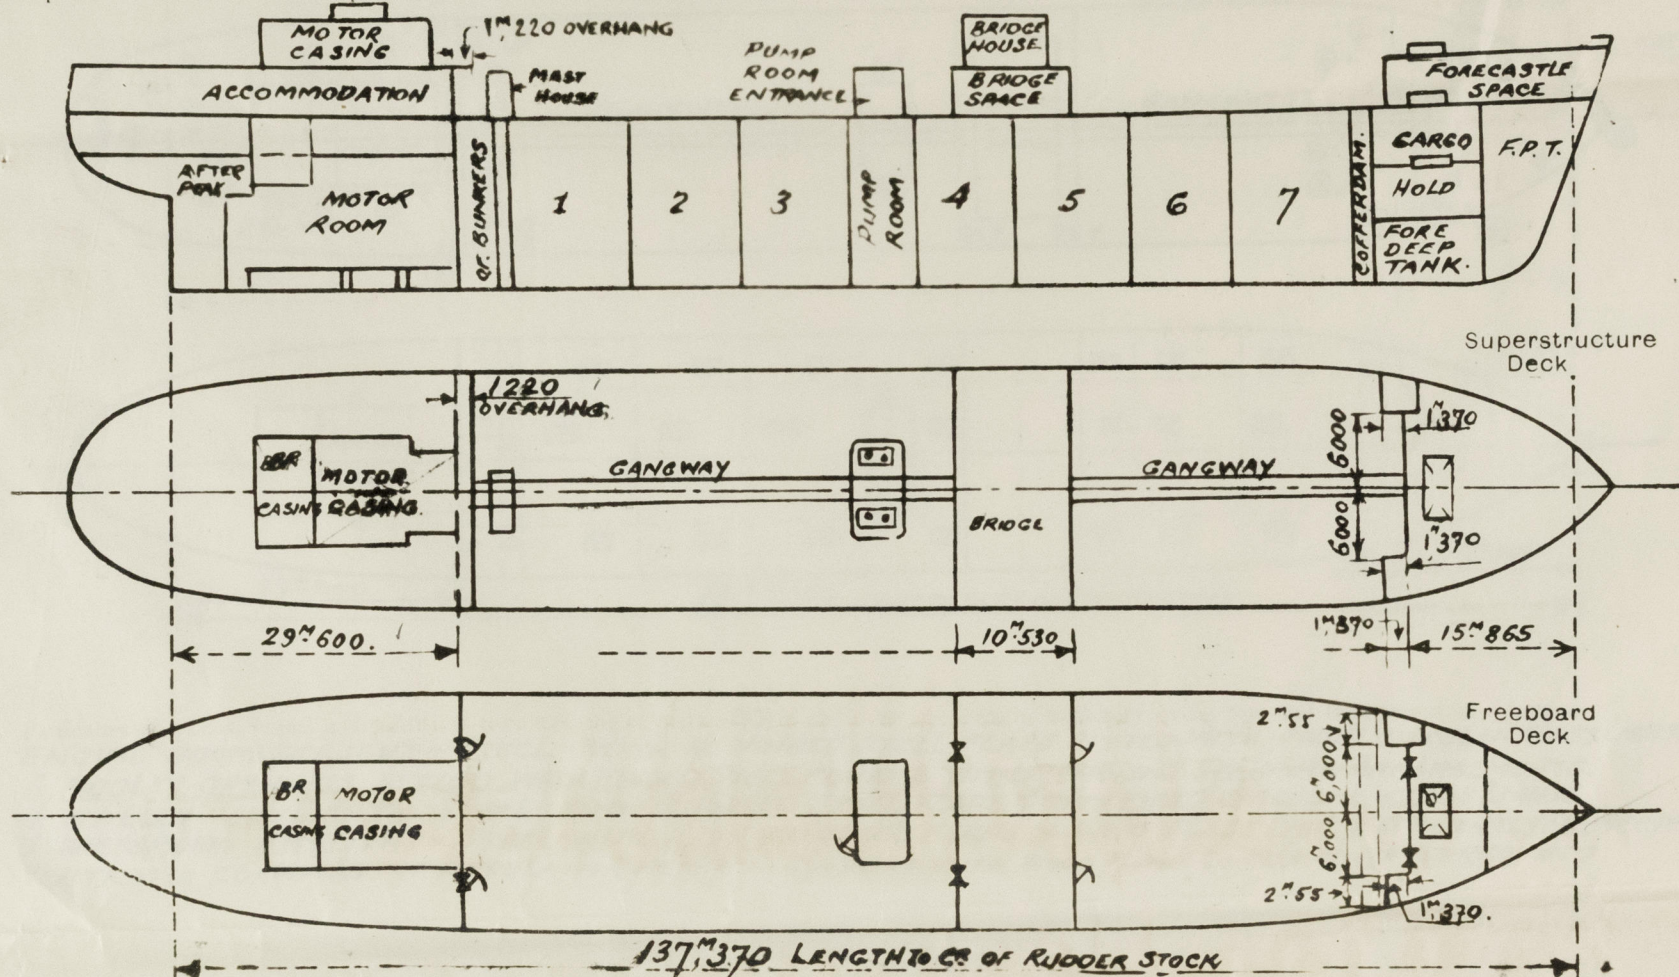 MOTOR
CASING
1ᴹ220 OVERHANG
BRIDGE
HOUSE
PUMP
ROOM
ENTRANCE
MAST
HOUSE
ACCOMMODATION
BRIDGE
SPACE
FORECASTLE
SPACE
AFTER
PEAK
MOTOR
ROOM
OF. BUNKERS
1
2
3
PUMP
ROOM.
4
5
6
7
COFFERDAM.
CARGO
HOLD
FORE
DEEP
TANK.
F.P.T.
Superstructure
Deck.
1220
OVERHANG.
BR
CASING
MOTOR.
CASING.
GANGWAY
BRIDGE
GANGWAY
6000
6000
1ᴹ370
1ᴹ370
29ᴹ600.
10ᴹ530
1ᴹ370
15ᴹ865
Freeboard
Deck
BR
CASING
MOTOR
CASING
2ᴹ55
6ᴹ,000
6ᴹ,000
2ᴹ55
1ᴹ370.
137ᴹ,370 LENGTH TO CR. OF RUDDER STOCK